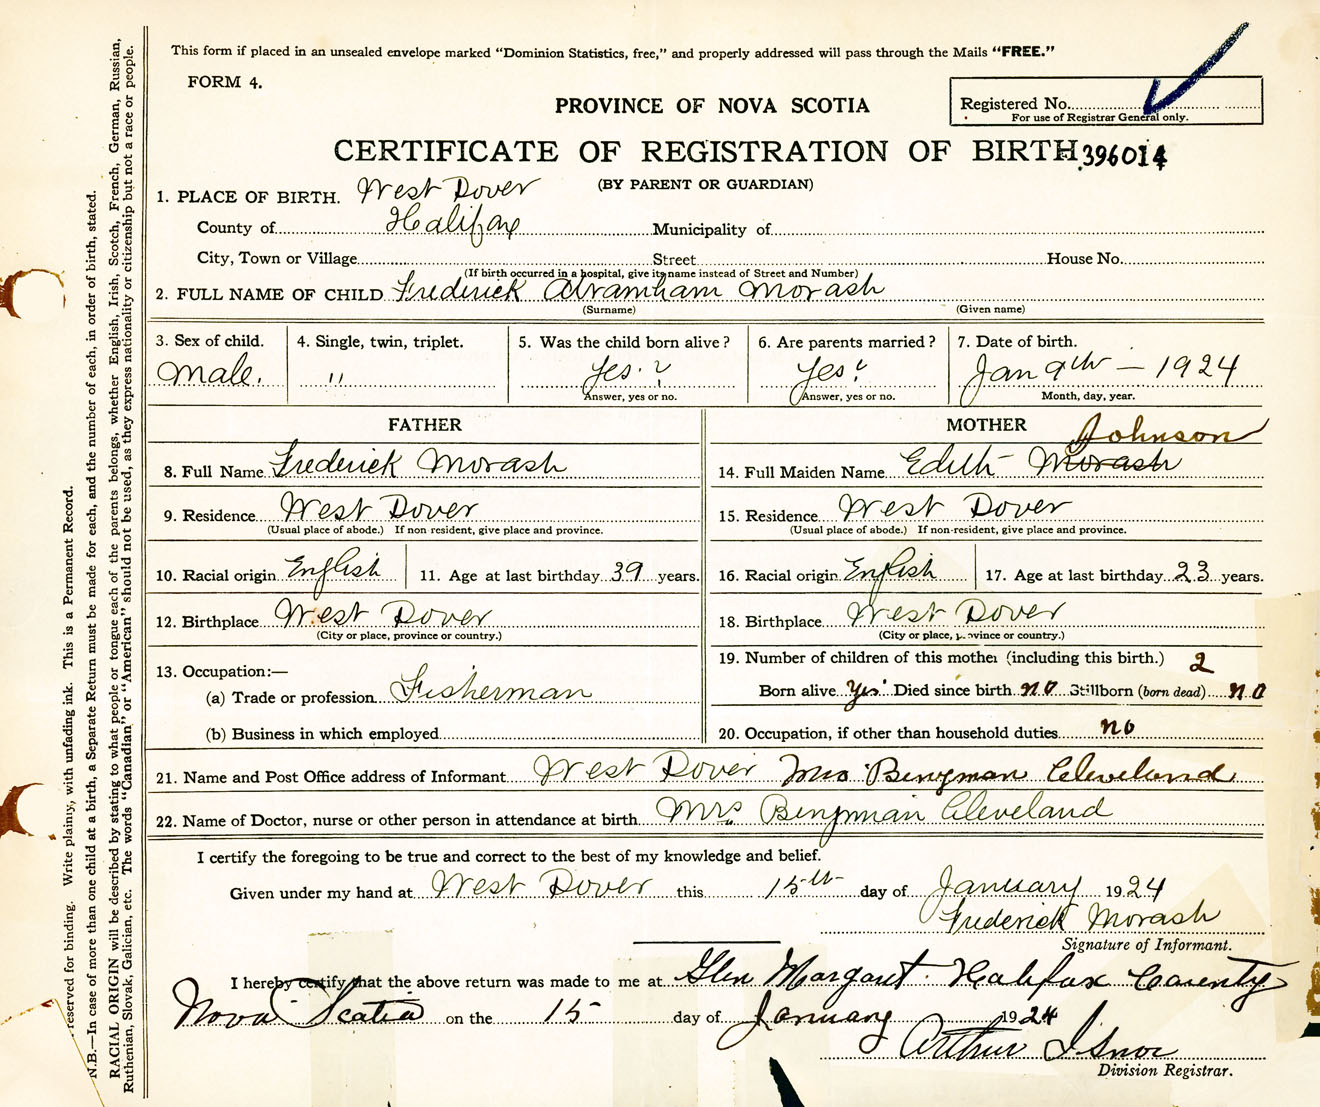 This form if placed in an unsealed envelope marked "Dominion Statistics, free," and properly addressed will pass through the Mails "FREE."
FORM 4.
PROVINCE OF NOVA SCOTIA
Registered No.
For use of Registrar General only.
CERTIFICATE OF REGISTRATION OF BIRTH 396014
(BY PARENT OR GUARDIAN)
1. PLACE OF BIRTH. West Dover
County of Halifax Municipality of
City, Town or Village Street House No.
(If birth occurred in a hospital, give its name instead of Street and Number)
2. FULL NAME OF CHILD Frederick Abramham Morash
(Surname) (Given name)
3. Sex of child. 4. Single, twin, triplet. 5. Was the child born alive? 6. Are parents married? 7. Date of birth.
Male. " Yes. ? Yes? Jan 9th — 1924
Answer, yes or no. Answer, yes or no. Month, day, year.
FATHER
8. Full Name Frederick Morash
9. Residence West Dover
(Usual place of abode.) If non-resident, give place and province.
10. Racial origin English 11. Age at last birthday 39 years.
12. Birthplace West Dover
(City or place, province or country.)
13. Occupation:—
(a) Trade or profession Fisherman
(b) Business in which employed
MOTHER
Johnson
14. Full Maiden Name Edith Morash
15. Residence West Dover
(Usual place of abode.) If non-resident, give place and province.
16. Racial origin English 17. Age at last birthday 23 years.
18. Birthplace West Dover
(City or place, province or country.)
19. Number of children of this mother (including this birth.) 2
Born alive Yes Died since birth no Stillborn (born dead) no
20. Occupation, if other than household duties no
21. Name and Post Office address of Informant West Dover Mrs Bengman Cleveland
22. Name of Doctor, nurse or other person in attendance at birth Mrs. Bengman Cleveland
I certify the foregoing to be true and correct to the best of my knowledge and belief.
Given under my hand at West Dover this 15th day of January 1924
Frederick Morash
Signature of Informant.
I hereby certify that the above return was made to me at Glen Margaret Halifax County
Nova Scotia on the 15 day of January 1924
Arthur Isnor
Division Registrar.
reserved for binding. Write plainly, with unfading ink. This is a Permanent Record.
N.B.—In case of more than one child at a birth, a Separate Return must be made for each, and the number of each, in order of birth, stated.
RACIAL ORIGIN will be described by stating to what people or tongue each of the parents belongs, whether English, Irish, Scotch, French, German, Russian,
Ruthenian, Slovak, Galician, etc. The words "Canadian" or "American" should not be used, as they express nationality or citizenship but not a race or people.